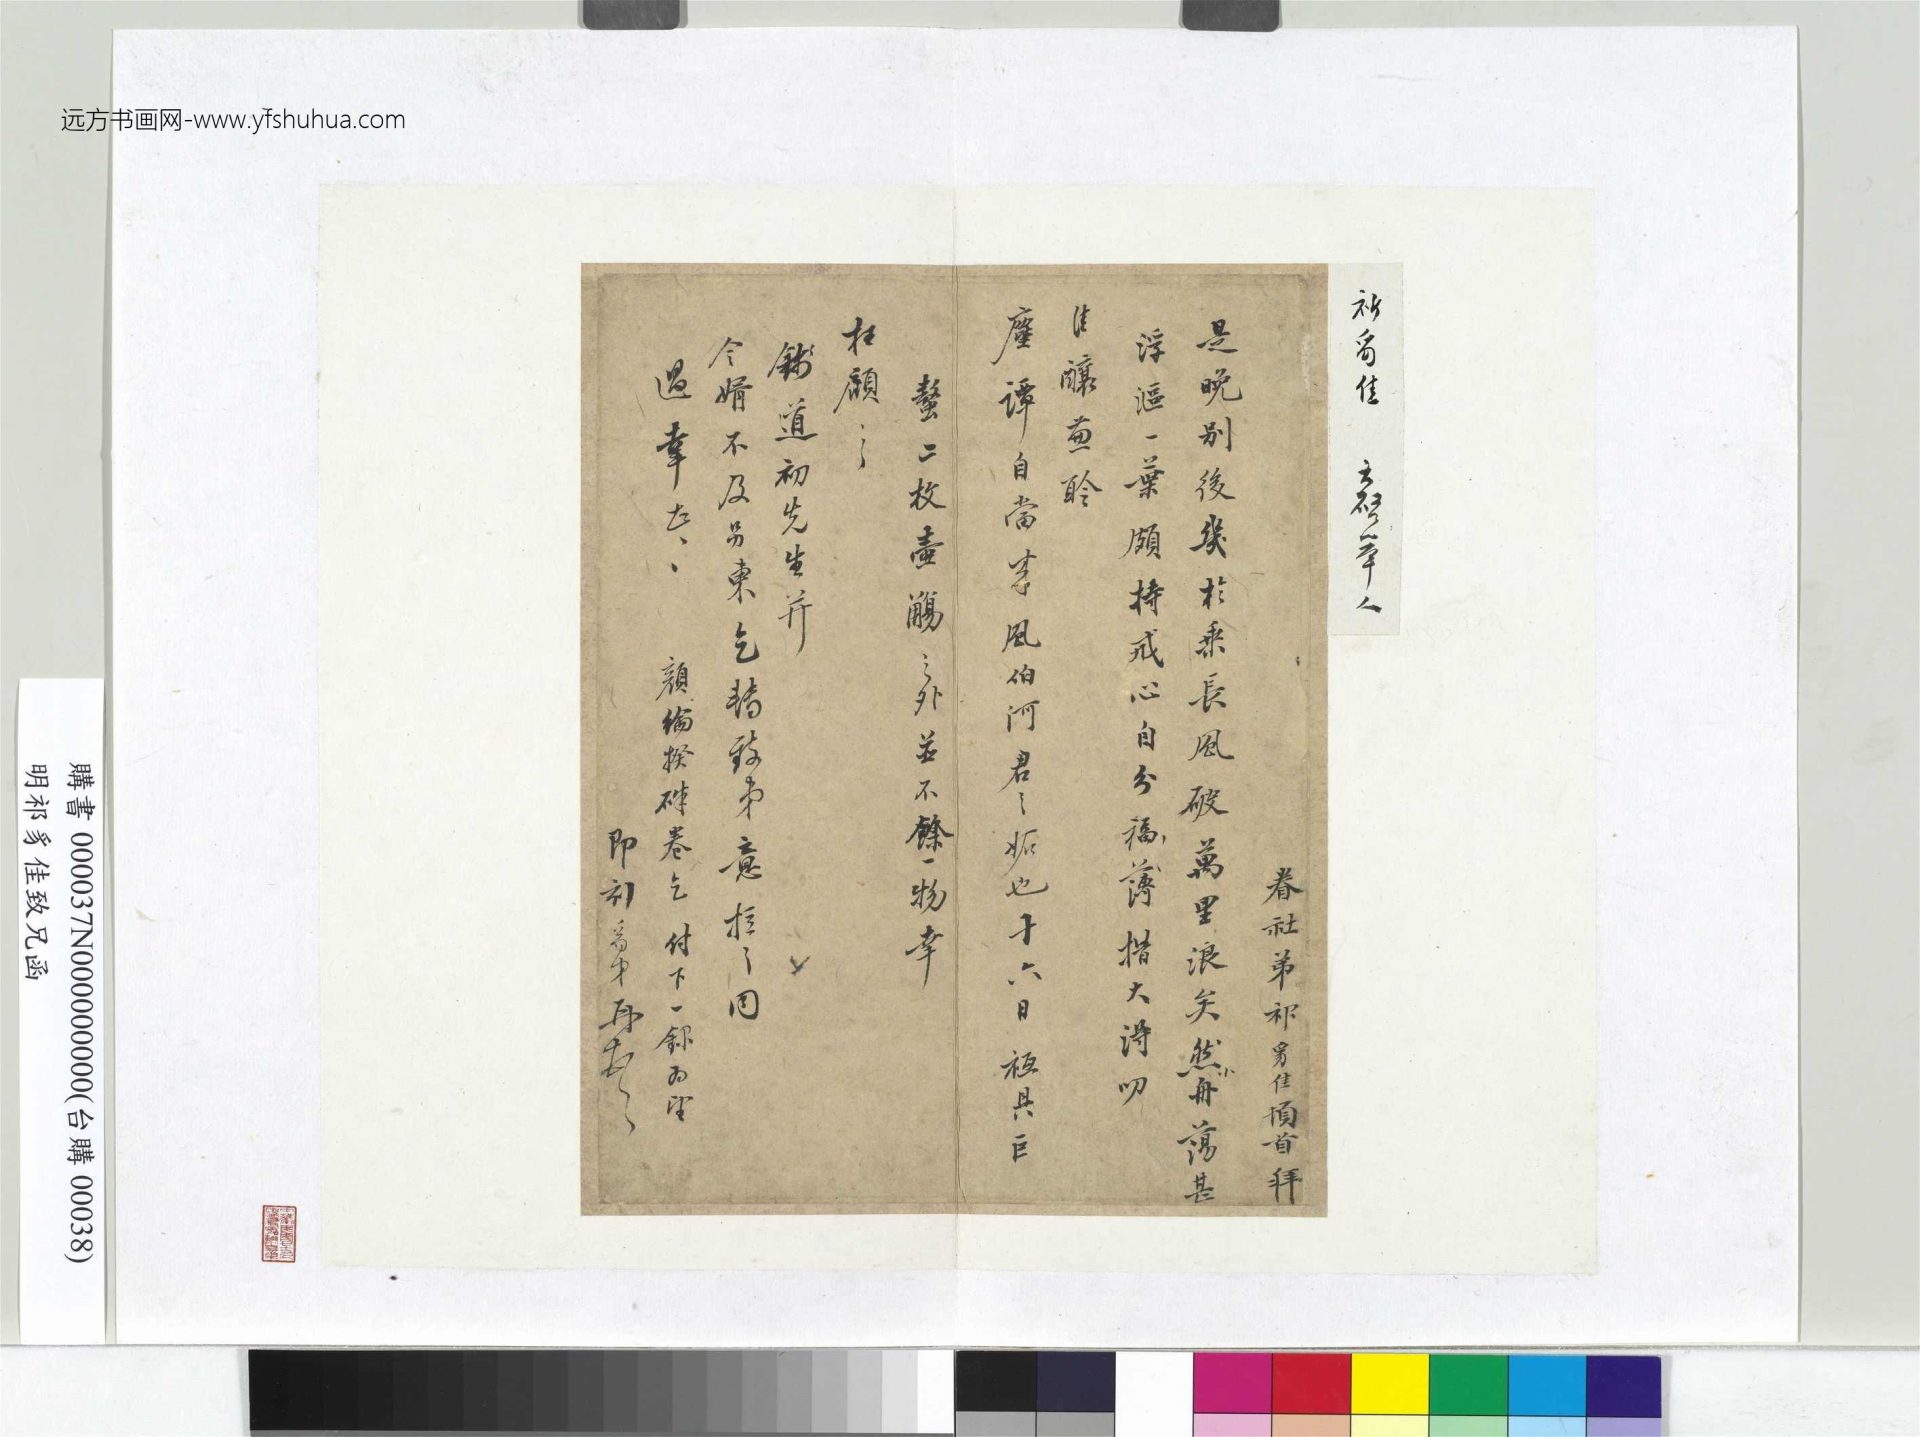 远方书画网-www.yfshuhua.com
祁豸佳
眷社弟祁豸佳頓首拜
是晚別後幾於乘長風破萬里浪矣然小舟蕩甚
浮漚一葉頗持戒心自分福薄措大得叨
佳釀兼聆
麈譚自當李風伯河君之妬也十六日祗具巨
螯二枚壺觴之外並不餘一物幸
枉顧之
錢道初先生并
令婿不及另柬乞轉致弟意拉之同
過幸甚
顏綸揆硃卷乞付下一錄為望
即刻弟再
購書 000037N000000000(台購 00038)
明祁豸佳致兄函